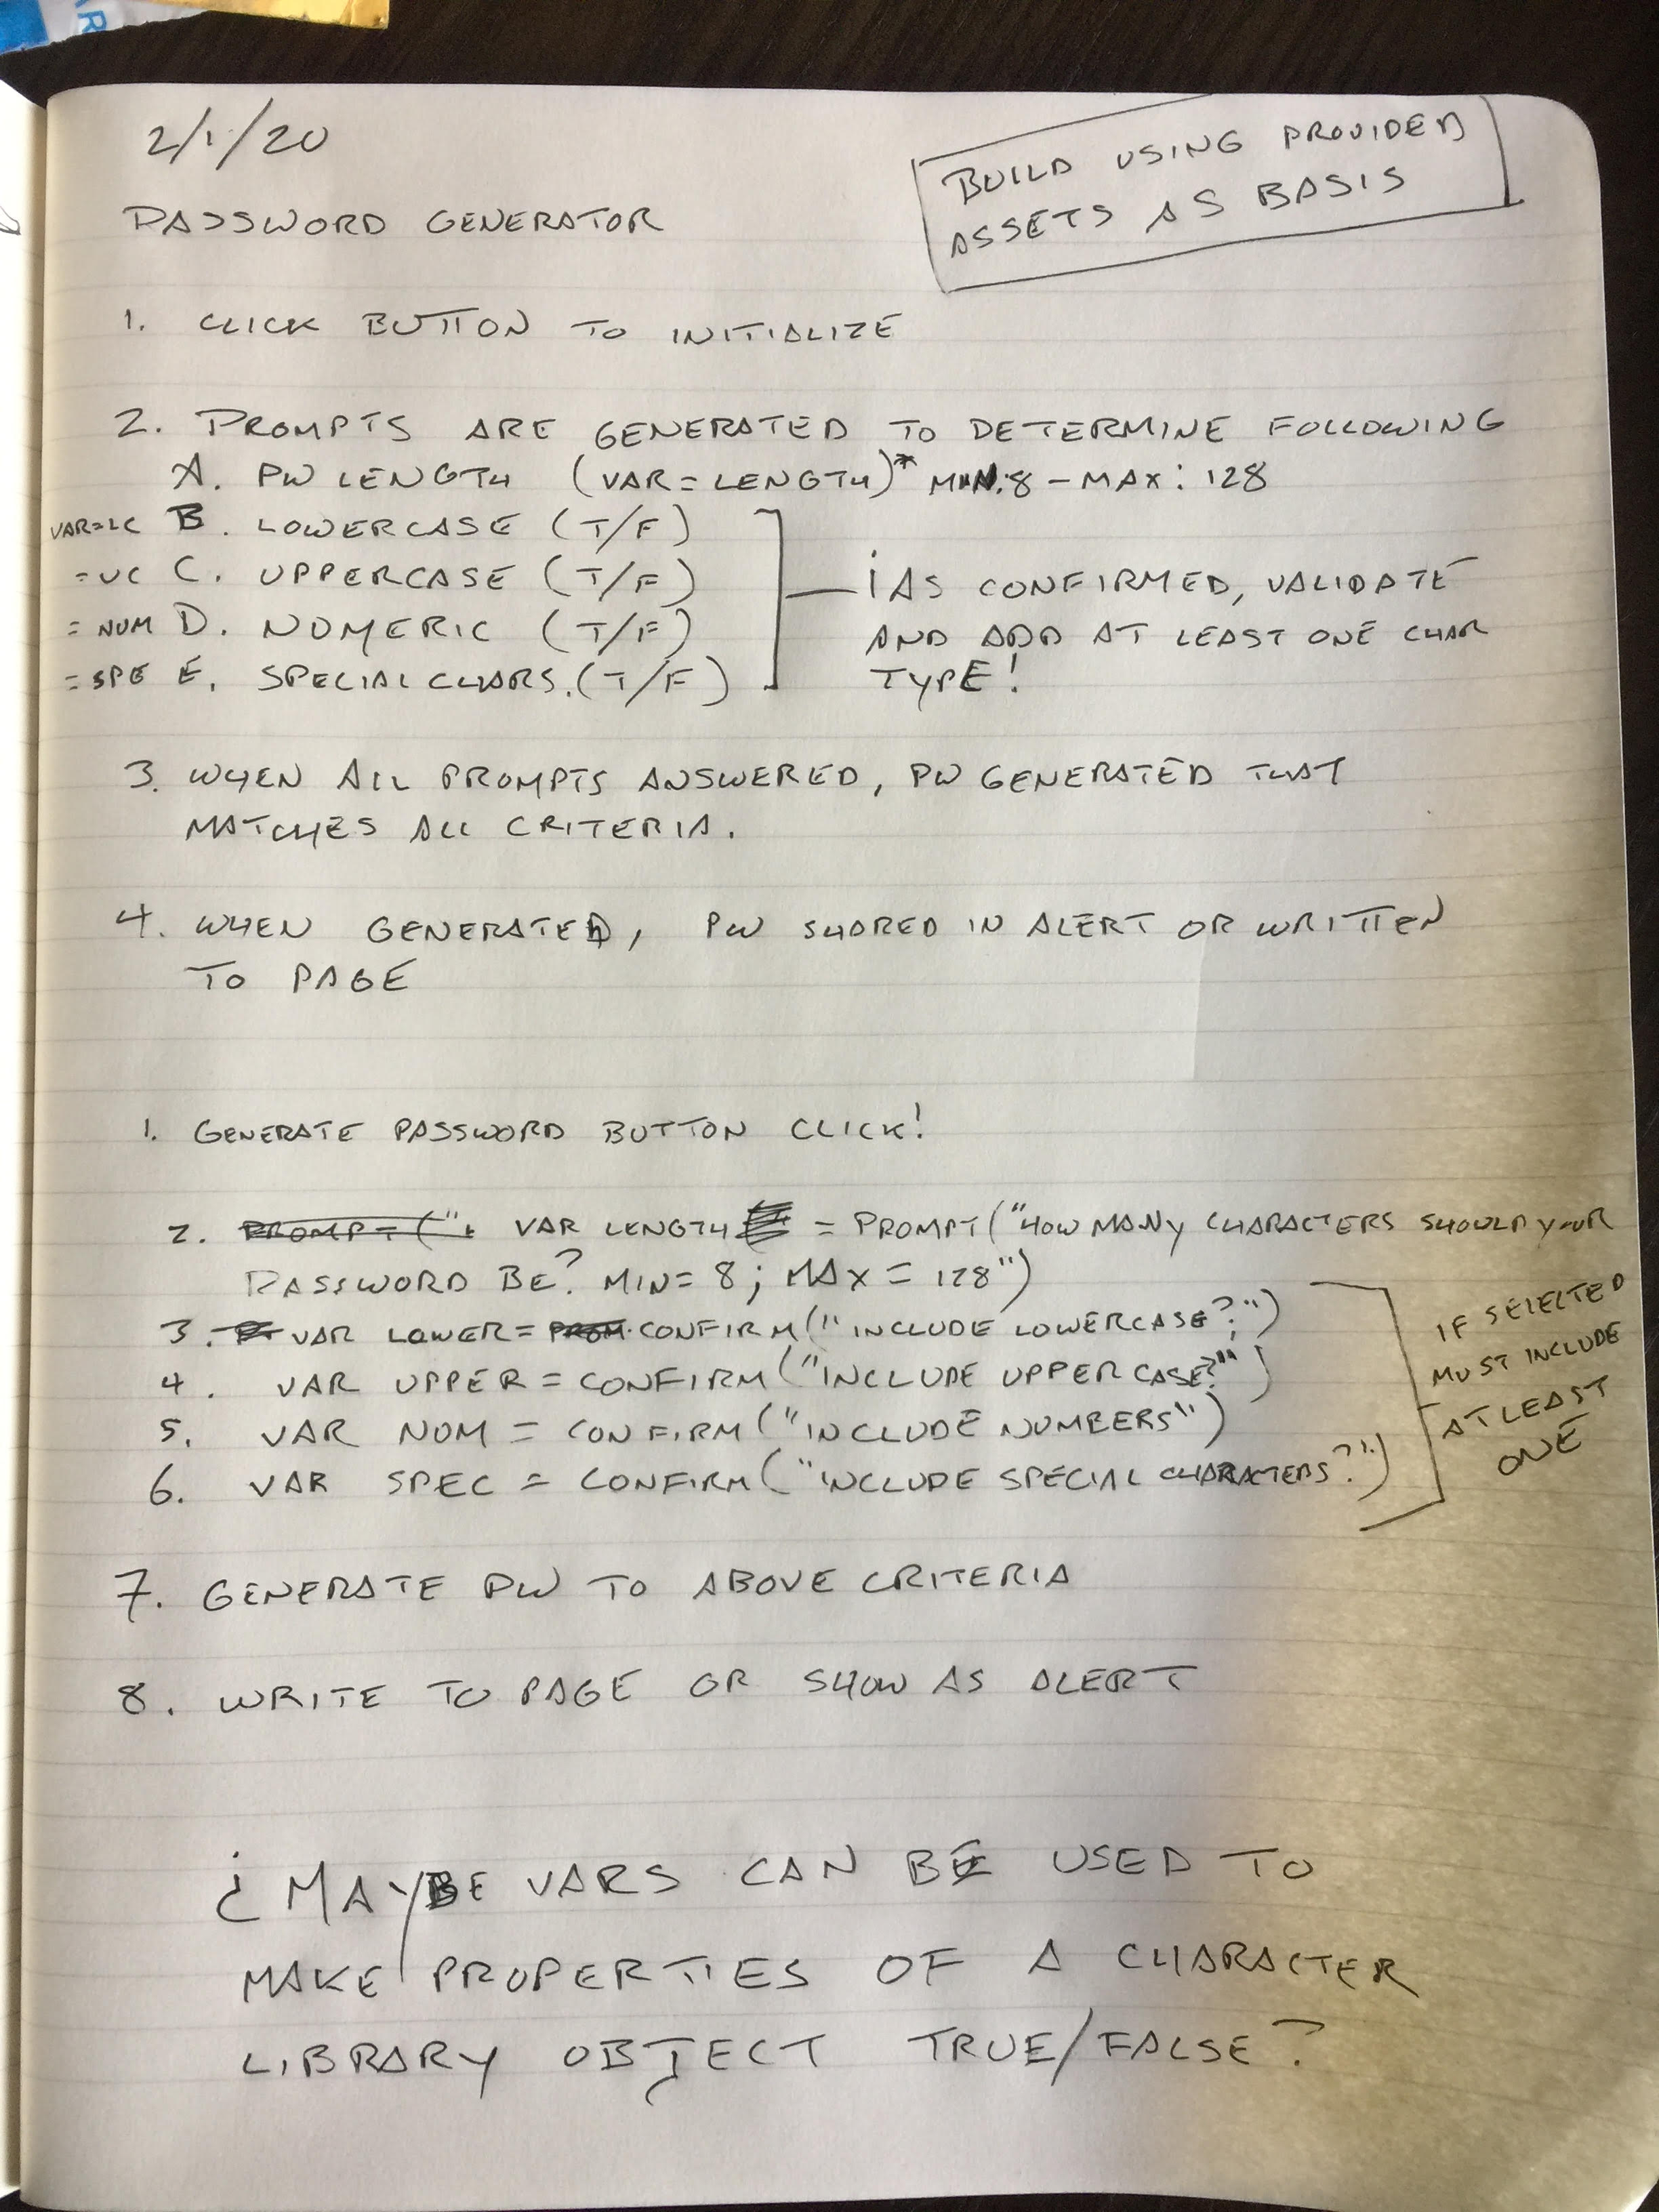 2/1/20
BUILD USING PROVIDED
ASSETS AS BASIS
PASSWORD GENERATOR
1. CLICK BUTTON TO INITIALIZE
2. PROMPTS ARE GENERATED TO DETERMINE FOLLOWING
A. PW LENGTH (VAR=LENGTH)* MIN:8 - MAX: 128
VAR=LC B. LOWERCASE (T/F)
=UC C. UPPERCASE (T/F)
=NUM D. NUMERIC (T/F)
=SPE E. SPECIAL CHARS. (T/F)
¡AS CONFIRMED, VALIDATE
AND ADD AT LEAST ONE CHAR
TYPE!
3. WHEN ALL PROMPTS ANSWERED, PW GENERATED THAT
MATCHES ALL CRITERIA.
4. WHEN GENERATED, PW SHARED IN ALERT OR WRITTEN
TO PAGE
1. GENERATE PASSWORD BUTTON CLICK!
2. PROMPT(" VAR LENGTH = PROMPT("HOW MANY CHARACTERS SHOULD YOUR
PASSWORD BE? MIN=8; MAX=128")
3. VAR LOWER = CONFIRM("INCLUDE LOWERCASE?")
4. VAR UPPER = CONFIRM("INCLUDE UPPERCASE?")
5. VAR NUM = CONFIRM("INCLUDE NUMBERS")
6. VAR SPEC = CONFIRM("INCLUDE SPECIAL CHARACTERS?")
IF SELECTED
MUST INCLUDE
AT LEAST
ONE
7. GENERATE PW TO ABOVE CRITERIA
8. WRITE TO PAGE OR SHOW AS ALERT
¿ MAYBE VARS CAN BE USED TO
MAKE PROPERTIES OF A CHARACTER
LIBRARY OBJECT TRUE/FALSE?